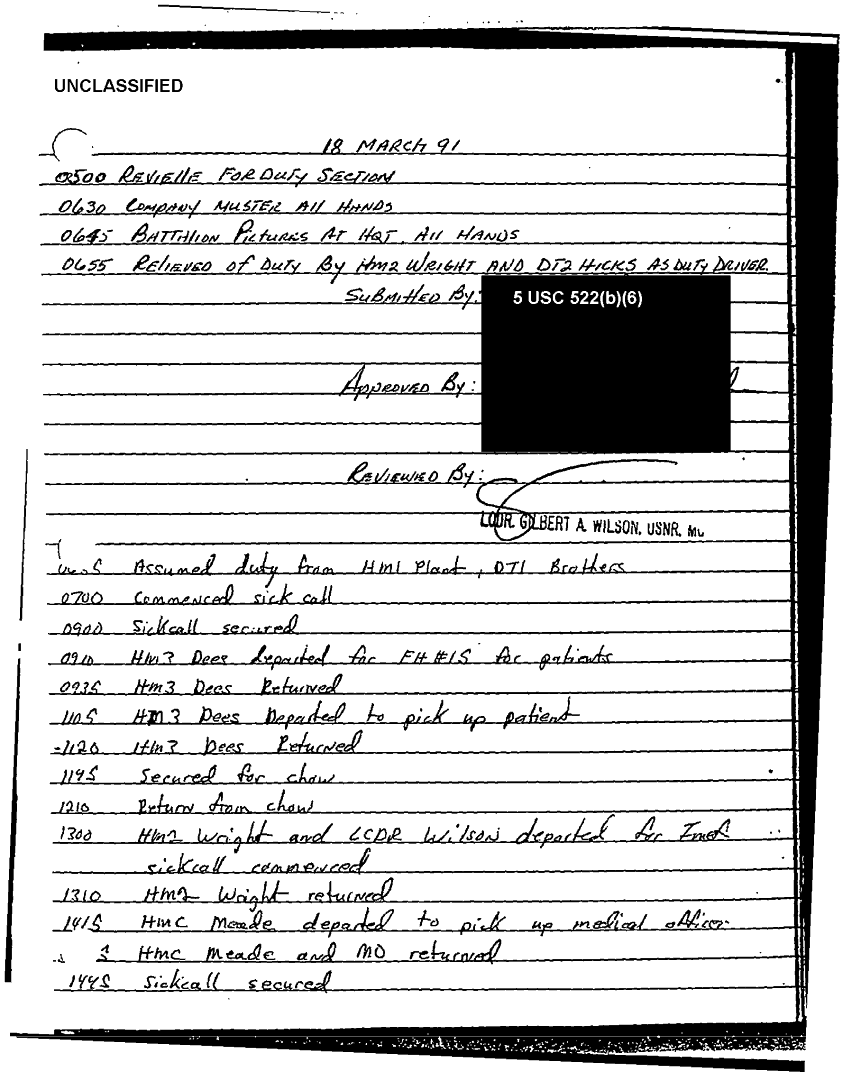 UNCLASSIFIED
18 MARCH 91
0500 REVIELLE FOR DUTY SECTION
0630 COMPANY MUSTER All HANDS
0645 BATTALION PICTURES AT HQT, All HANDS
0655 RELIEVED OF DUTY BY HM2 WRIGHT AND DT2 HICKS AS DUTY DRIVER.
SUBMITTED BY:
5 USC 522(b)(6)
APPROVED BY:
REVIEWED BY:
LCDR. GILBERT A. WILSON, USNR, MC
Assumed duty from HM1 Plant, DT1 Brothers
0700 Commenced sick call
0900 Sickcall secured
0910 HM3 Dees departed for FH #15 for patients
0935 Hm3 Dees Returned
1105 HM3 Dees Departed to pick up patient
1120 Hm3 Dees Returned
1145 Secured for chow
1210 Return from chow
1300 HM2 Wright and LCDR Wilson departed for
sickcall commenced
1310 HM2 Wright returned
1415 HMC Meade departed to pick up medical officer
HMC Meade and MO returned
1445 Sickcall secured